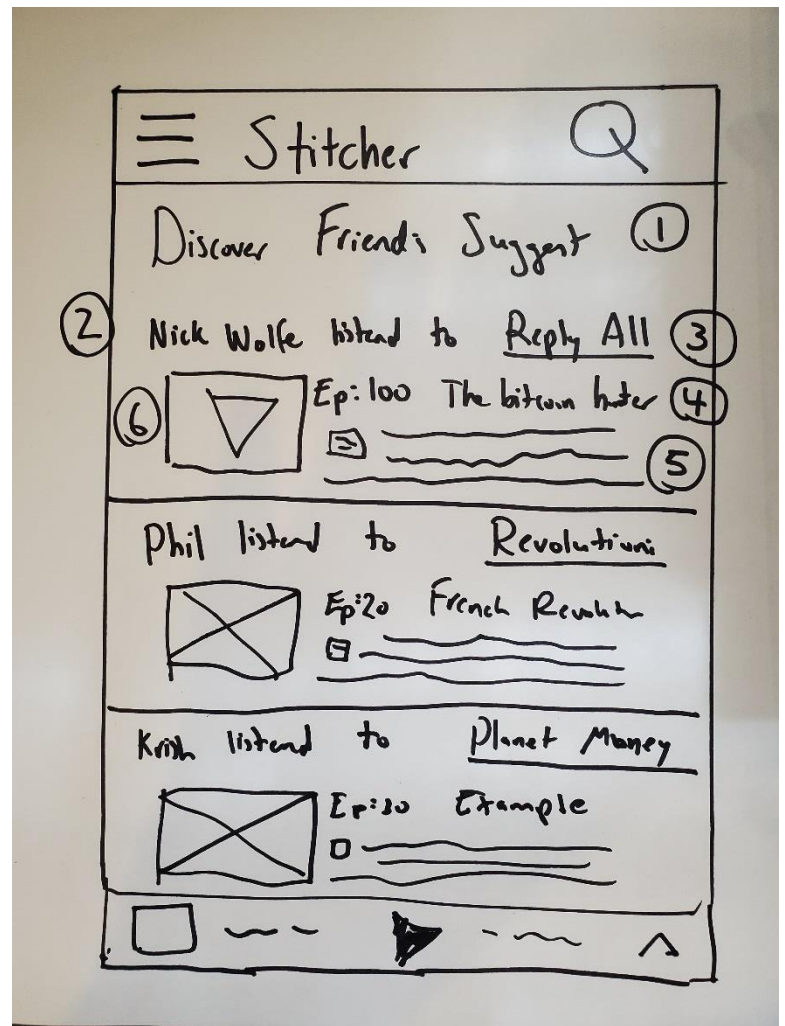 Stitcher
Discover Friends Suggest ①
② Nick Wolfe listend to Reply All ③
⑥ Ep: 100 The bitcoin hunter ④
⑤
Phil listend to Revolutions
Ep: 20 French Revolution
Krish listend to Planet Money
Ep: 30 Example